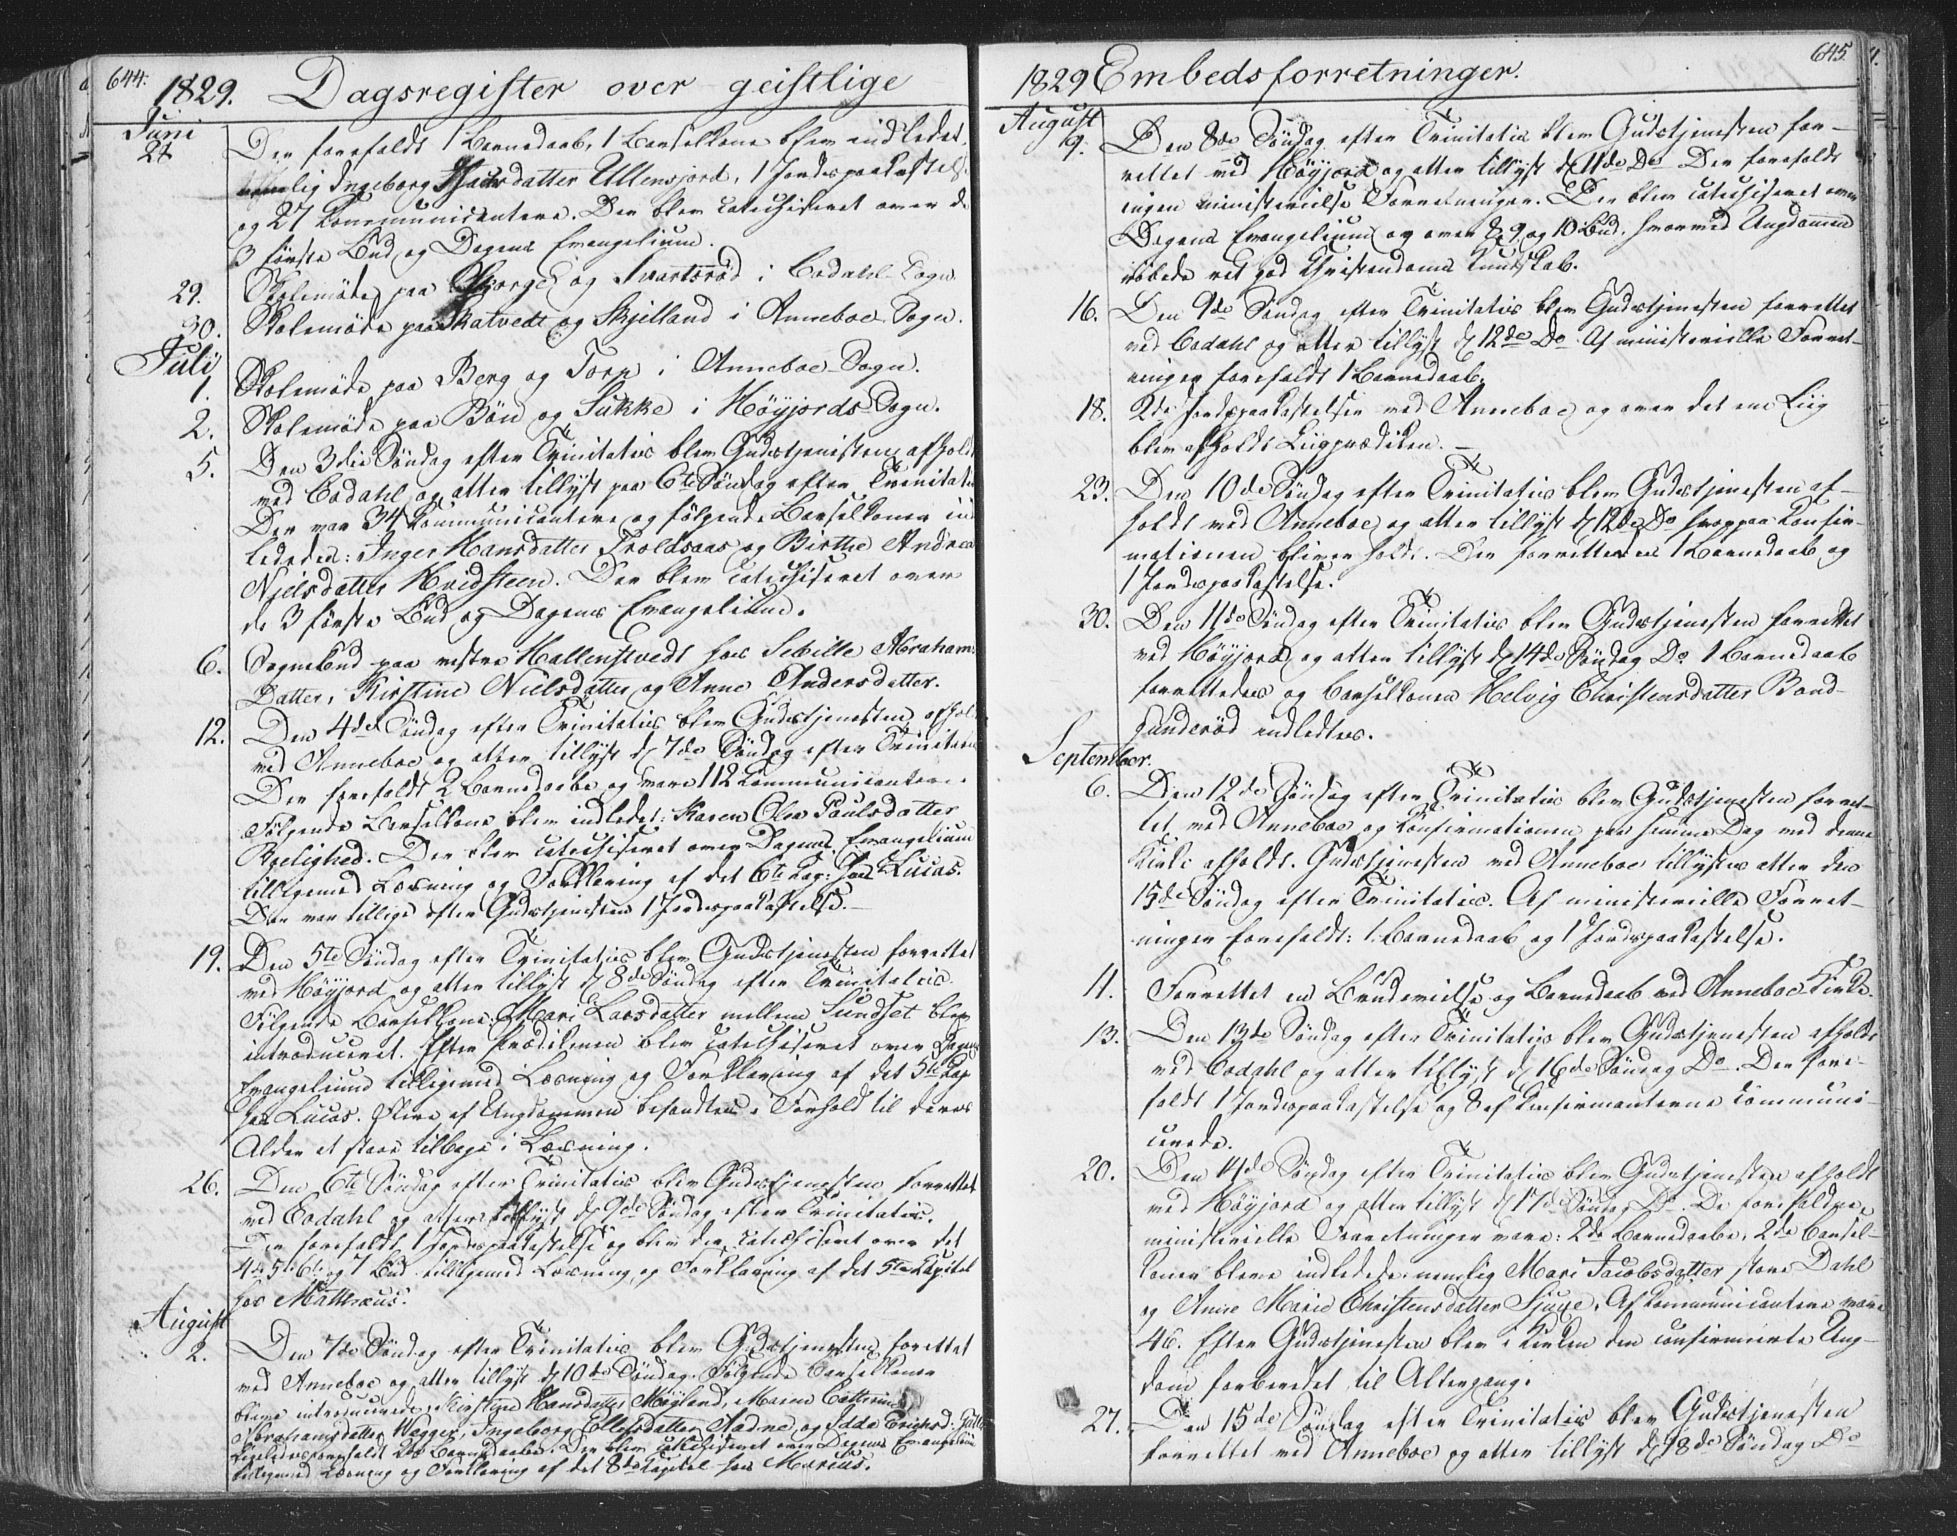 644.
1829. Dagsregister over geistlige
Juni
24 Der forefaldt 1 Barnedaab, 1 Barselkone blev indledet,
nemlig Ingeborg datter Ullensjord, 1 Jordspaakastelse
og 27 Communicantere. Der blev catechiseret over de
3 første Bud og Dagens Evangelium.
29. Skolemøde paa og Svartsrød i Codahl Sogn.
30. Skolemøde paa Skatvedt og Skjelland i Anneboe Sogn.
Juli
1. Skolemøde paa Berg og Torp i Anneboe Sogn.
2. Skolemøde paa Bøn og Sukke i Høyjords Sogn.
5. Den 3die Søndag efter Trinitatis blev Gudstjenesten afholdt
ved Codahl og atter tillyst paa 6te Søndag efter Trinitatis
Der var 34 Communicantere og følgende Barselkoner ind
lededes: Inger Hansdatter Troldsaas og Birthe Andrea
Njelsdatter Hvidsteen. Der blev catechiseret over
de 3 første Bud og Dagens Evangelium.
6. Sognebud paa vestre Hallenstvedt hos Sebille Abrahams
Datter, Kirstine Nielsdatter og Anne Andersdatter.
12. Den 4de Søndag efter Trinitatis blev Gudstjenesten afhol
ved Anneboe og atter tillyst d. 7de Søndag efter Trinitatis
Der forefaldt 2 Barnedaabe og vare 112 Communicantere.
Følgende Barselkone blev indledet: Karen Olea Paulsdatter
Roelighed. Der blev catechiseret over Dagens Evangelium
tilligemed Læsning og Forklaring af det 6te Cap: hos Lucas.
Der var tillige efter Gudstjenesten 1 Jordspaakastelse.
19. Den 5te Søndag efter Trinitatis blev Gudstjenesten forrettet
ved Høyjord og atter tillyst d. 8de Søndag efter Trinitatis.
Følgende Barselkone: Mari Larsdatter mellem Sundset blev
introduceret. Efter Prædikenen blev catechiseret over Dagens
Evangelium tilligemed Læsning og Forklaring af det 5te Cap
hos Lucas. Flere af Ungdommen befandtes i Forhold til deres
Alder at staae tilbage i Læsning.
26. Den 6te Søndag efter Trinitatis blev Gudstjenesten forrettet
ved Codahl og atter tillyst d. 9de Søndag efter Trinitatis.
Der forefaldt 1 Jordspaakastelse og blev der catechiseret over det
4de 5te 6te og 7 Bud tilligemed Læsning og Forklaring af det 5te Capitel
hos Matthæus.
August
2. Den 7de Søndag efter Trinitatis blev Gudstjenesten forrettet
ved Anneboe og atter tillyst d. 10de Søndag. Følgende Barselkoner
bleve introducerede: Kirstine Hansdatter Møyland, Maren Cathrine
Abrahamsdatter Wegger, Ingeborg Ellefsdatter Aadne og Edde Erichsd.
forefaldt 2de Barnedaabe. Der blev catechiseret over Dagens Evangelium
tilligemed Læsning og Forklaring af det 8de Capitel hos Marcus.
645
1829 Embedsforretninger.
August
9. Den 8de Søndag efter Trinitatis blev Gudstjenesten for-
rettet ved Høyjord og atter tillyst d. 11de Do. Der forefaldt
ingen ministerielle Forretninger. Der blev catechiseret over
Dagens Evangelium og over 8, 9 og 10 Bud, hvorved Ungdommen
røbede ret god Christendoms Kundskab.
16. Den 9de Søndag efter Trinitatis blev Gudstjenesten forrettet
ved Codahl og atter tillyst d. 12de Do. Af ministerielle Forret-
ninger forefaldt 1 Barnedaab.
18. 2de Jordspaakastelser ved Anneboe og over det ene Liig
blev afholdt Liigprædiken. —
23. Den 10de Søndag efter Trinitatis blev Gudstjenesten af-
holdt ved Anneboe og atter tillyst d. 12de Do hvorpaa Confir-
mationen bliver holdt. Der forrettedes 1 Barnedaab og
1 Jordspaakastelse.
30. Den 11de Søndag efter Trinitatis blev Gudstjenesten forrettet
ved Høyjord og atter tillyst d. 14de Søndag Do. 1 Barnedaab
forrettedes og Barselkonen Helvig Christensdatter Bond-
sunderød indledtes.
September.
6. Den 12de Søndag efter Trinitatis blev Gudstjenesten forret-
tet ved Anneboe og Confirmationen paa samme Dag ved denne
Kirke afholdt. Gudstjenesten ved Anneboe tillystes atter den
15de Søndag efter Trinitatis. Af ministerielle Forret-
ninger forefaldt: 1 Barnedaab og 1 Jordspaakastelse.
11. Forrettet en Brudevielse og Barnedaab ved Anneboe Kirke.
13. Den 13de Søndag efter Trinitatis blev Gudstjenesten afholdt
ved Codahl og atter tillyst d. 16de Søndag Do. Der fore-
faldt 1 Jordspaakastelse og 8 af Confirmanterne communi-
cerede.
20. Den 14de Søndag efter Trinitatis blev Gudstjenesten afholdt
ved Høyjord og atter tillyst d. 17de Søndag Do. De forefaldne
ministerielle Forretninger vare: 2de Barnedaabe, 2de Barsel-
koner bleve indledede nemlig Mari Jacobsdatter store Dahl
og Anne Marie Christensdatter Sjuge. Af Communicantere vare
46. Efter Gudstjenesten blev i Kirken den confirmerte Ung-
dom forberedet til Altergang.
27. Den 15de Søndag efter Trinitatis blev Gudstjenesten
forrettet ved Anneboe og atter tillyst d. 18de Søndag Do